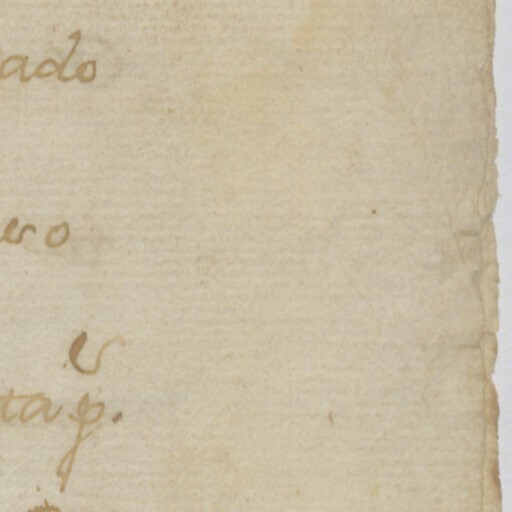 ado
ero
er
ta p.